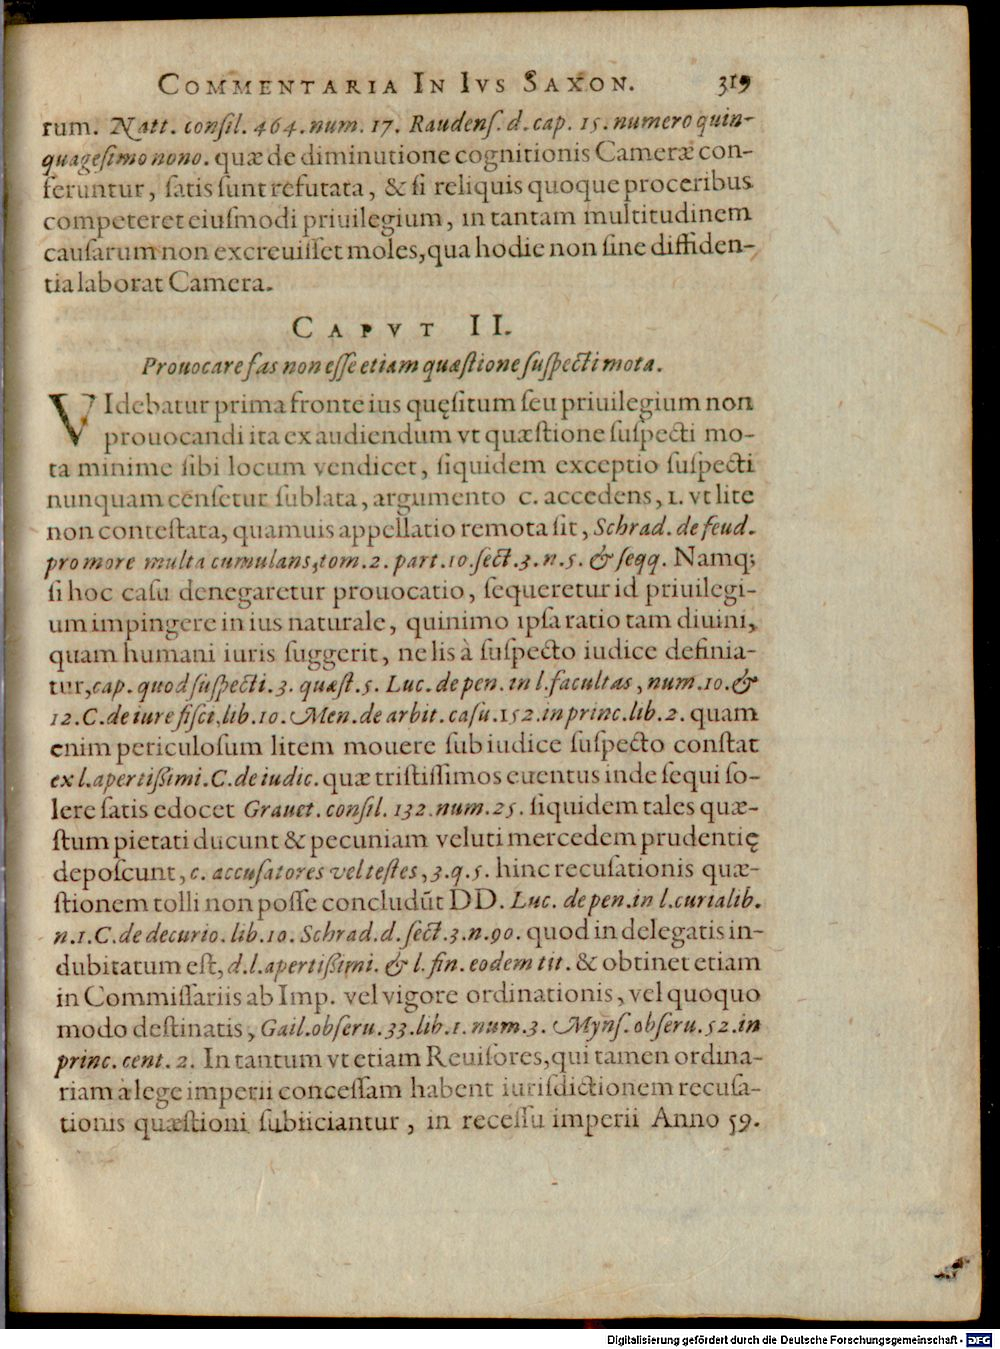 COMMENTARIA IN IVS SAXON. 319
rum. Natt. consil. 464. num. 17. Raudens. d. cap. 15. numero quin-
quagesimo nono. quæ de diminutione cognitionis Cameræ con-
feruntur, satis sunt refutata, & si reliquis quoque proceribus
competeret eiusmodi priuilegium, in tantam multitudinem
causarum non excreuisset moles, qua hodie non sine diffiden-
tia laborat Camera.
CAPVT II.
Prouocare fas non esse etiam quæstione suspecti mota.
VIdebatur prima fronte ius quęsitum seu priuilegium non
prouocandi ita exaudiendum vt quæstione suspecti mo-
ta minime sibi locum vendicet, siquidem exceptio suspecti
nunquam censetur sublata, argumento c. accedens, 1. vt lite
non contestata, quamuis appellatio remota sit, Schrad. de feud.
pro more multa cumulans, tom. 2. part. 10. sect. 3. n. 5. & seqq. Namq;
si hoc casu denegaretur prouocatio, sequeretur id priuilegi-
um impingere in ius naturale, quinimo ipsa ratio tam diuini,
quam humani iuris suggerit, ne lis à suspecto iudice definia-
tur, cap. quod suspecti. 3. quæst. 5. Luc. de pen. in l. facultas, num. 10. &
12. C. de iure fisci, lib. 10. Men. de arbit. casu. 152. in princ. lib. 2. quam
enim periculosum litem mouere sub iudice suspecto constat
ex l. apertißimi. C. de iudic. quæ tristissimos euentus inde sequi so-
lere satis edocet Grauet. consil. 132. num. 25. siquidem tales quæ-
stum pietati ducunt & pecuniam veluti mercedem prudentię
deposcunt, c. accusatores vel testes, 3. q. 5. hinc recusationis quæ-
stionem tolli non posse concludūt DD. Luc. de pen. in l. curialib.
n. 1. C. de decurio. lib. 10. Schrad. d. sect. 3. n. 90. quod in delegatis in-
dubitatum est, d. l. apertißimi. & l. fin. eodem tit. & obtinet etiam
in Commissariis ab Imp. vel vigore ordinationis, vel quoquo
modo destinatis, Gail. obseru. 33. lib. 1. num. 3. Myns. obseru. 52. in
princ. cent. 2. In tantum vt etiam Reuisores, qui tamen ordina-
riam a lege imperii concessam habent iurisdictionem recusa-
tionis quæstioni subiiciantur, in recessu imperii Anno 59.
Digitalisierung gefördert durch die Deutsche Forschungsgemeinschaft - DFG